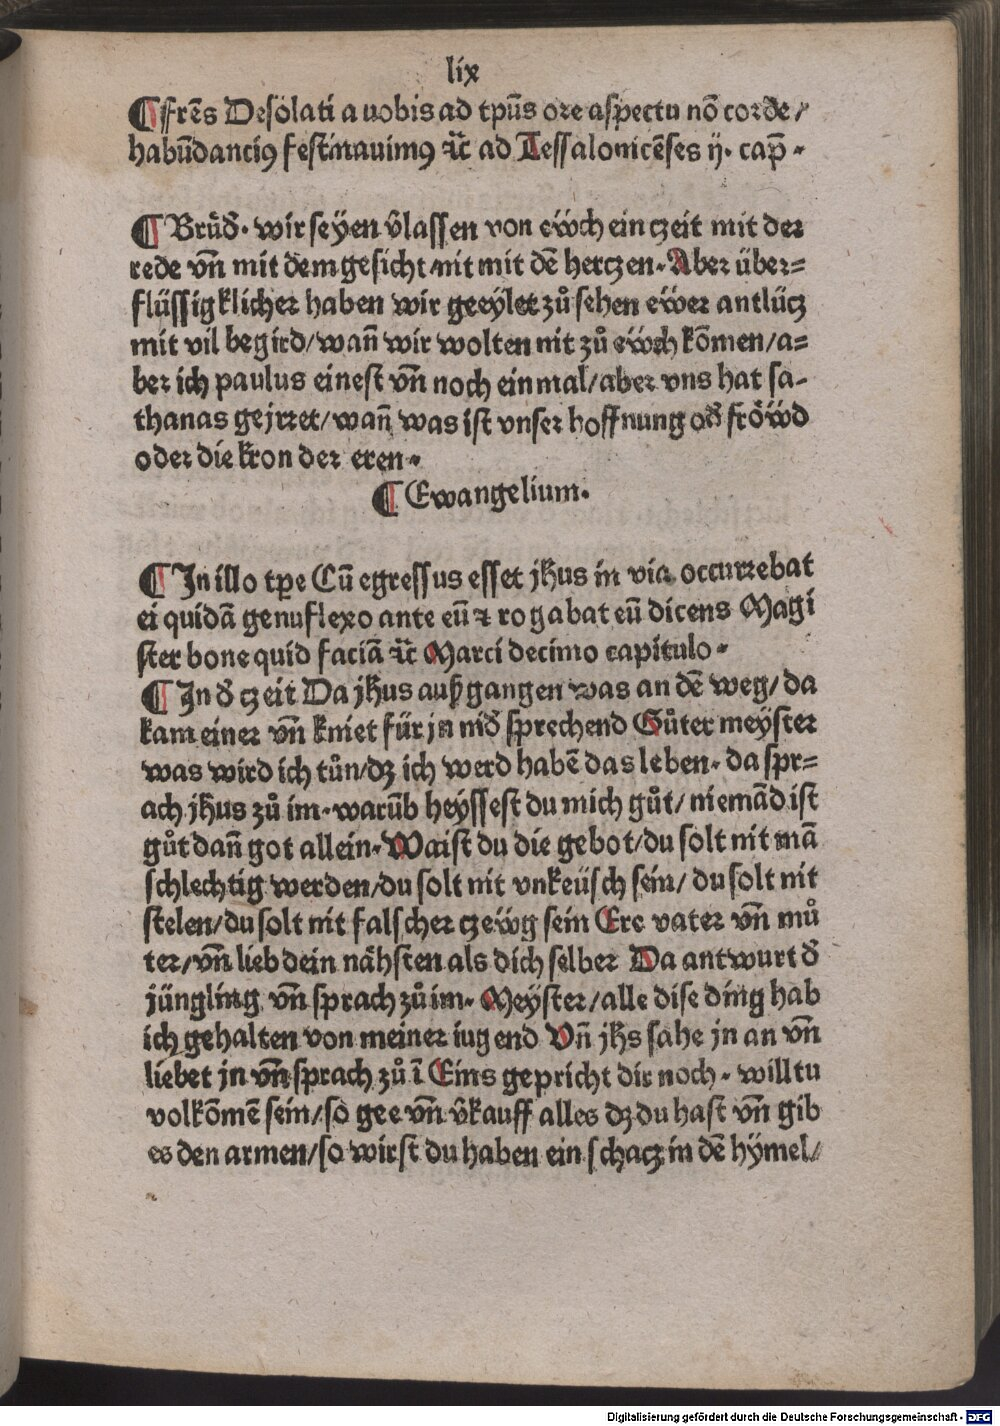 lix
¶ffrēs Desolati a uobis ad tp̄us ore aspectu nō corde/
habūdanciꝰ festinauimꝰ ⁊c̄ ad Tessalonicēses ij. cap̄.
¶ Brůd̄. wir seyen v̄lassen von eẅch ein czeit mit der
rede vn̄ mit dem gesicht/nit mit dē herczen. Aber über=
flüssigklicher haben wir geeylet zů sehen eẅer antlücz
mit vil begird/wan̄ wir wolten nit zů eẅch kōmen/a=
ber ich paulus einest vn̄ noch ein mal/aber vns hat sa-
thanas gejrret/wan̄ was ist vnser hoffnung od̄ fröẅd
oder die kron der eren.
¶ Ewangelium.
¶ In illo tp̄e Cū egressus esset jhūs in via occurrebat
ei quidā genuflexo ante eū ⁊ rogabat eū dicens Magi
ster bone quid faciā ⁊c̄ Marci decimo capitulo.
¶ In d̄ czeit Da jhūs außgangen was an dē weg/da
kam einer vn̄ kniet für jn nid̄ sprechend Gůter meyster
was wird ich tůn/dz ich werd habē das leben. da spr=
ach jhūs zů im. warūb heyssest du mich gůt/niemād ist
gůt dan̄ got allein. Waist du die gebot/du solt nit mā
schlechtig werden/du solt nit vnkeüsch sein/du solt nit
stelen/du solt nit falscher czeẅg sein Ere vater vn̄ mů
ter/vn̄ lieb dein nähsten als dich selber Da antwurt d̄
jüngling vn̄ sprach zů im. Meyster/alle dise ding hab
ich gehalten von meiner iugend Vn̄ jhs sahe jn an vn̄
liebet jn vn̄ sprach zů ī Eins gepricht dir noch. willtu
volkōmē sein/so gee vn̄ v̄kauff alles dz du hast vn̄ gib
es den armen/so wirst du haben ein schacz in dē hymel/
Digitalisierung gefördert durch die Deutsche Forschungsgemeinschaft - DFG